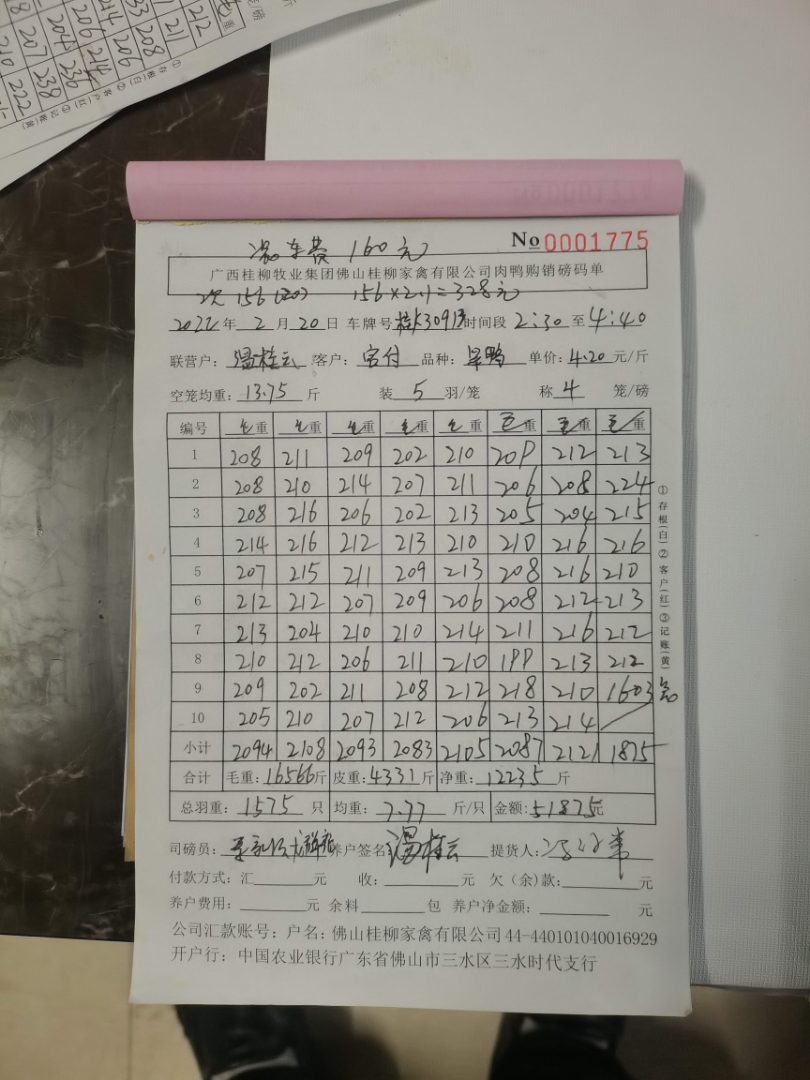 12
212
211
208
206
214
33
214
206
204
207
210
236
238
222
①存根(白)②客户(红)③记账(黄)
车费 160元
No 0001775
广西桂柳牧业集团佛山桂柳家禽有限公司肉鸭购销磅码单
次 156(20) 156×2.1=328元
2022年2月20日 车牌号 时间段 2:30 至 4:40
联营户: 温桂云 客户: 品种: 旱鸭 单价: 4.20 元/斤
空笼均重: 13.75 斤 装 5 羽/笼 称 4 笼/磅
编号 毛重 毛重 毛重 毛重 毛重 毛重 毛重 毛重
1 208 211 209 202 210 209 212 213
2 208 210 214 207 211 206 208 224
3 208 216 206 202 213 205 204 215
4 214 216 212 213 210 210 216 216
5 207 215 211 209 213 208 216 210
6 212 212 207 209 206 208 212 213
7 213 204 210 210 214 211 216 212
8 210 212 206 211 210 199 213 212
9 209 202 211 208 212 218 210 1603
10 205 210 207 212 206 213 214
小计 2094 2108 2093 2083 2105 2087 2121 1875
合计 毛重: 16566斤 皮重: 4331斤 净重: 12235斤
总羽重: 1575 只 均重: 7.77 斤/只 金额: 51875元
①存根(白)②客户(红)③记账(黄)
司磅员: 养户签名: 温桂云 提货人:
付款方式: 汇 元 收: 元 欠(余)款: 元
养户费用: 元 余料 包 养户净金额: 元
公司汇款账号: 户名: 佛山桂柳家禽有限公司 44-440101040016929
开户行: 中国农业银行广东省佛山市三水区三水时代支行